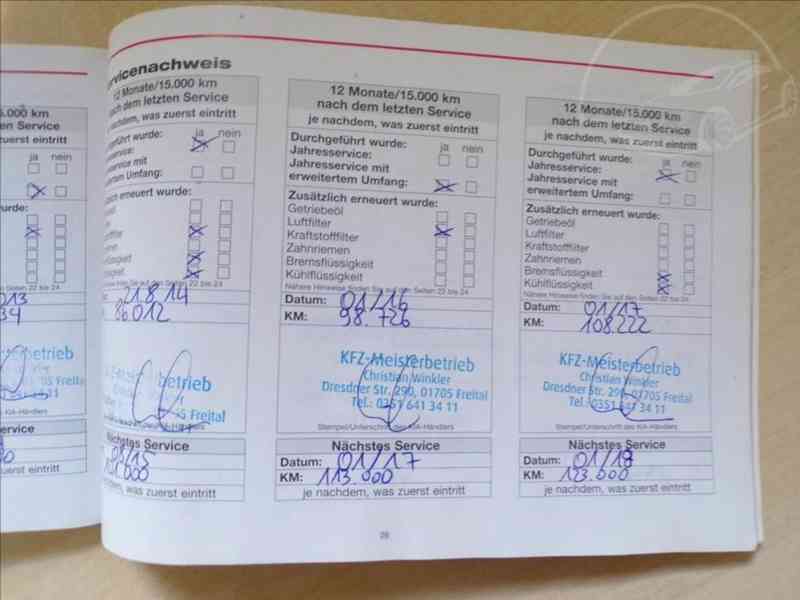 rvicenachweis
5.000 km
en Service
zuerst eintritt
ja nein
wurde:
013
34
betrieb
05 Freital
zuerst eintritt
12 Monate/15.000 km
nach dem letzten Service
nachdem, was zuerst eintritt
führt wurde: ja nein
service:
service mit
Umfang:
ch erneuert wurde:
21.8.14
86012
betrieb
Freital
KIA-Händlers
Nächstes Service
08/15
nachdem, was zuerst eintritt
12 Monate/15.000 km
nach dem letzten Service
je nachdem, was zuerst eintritt
Durchgeführt wurde: ja nein
Jahresservice:
Jahresservice mit
erweitertem Umfang:
Zusätzlich erneuert wurde:
Getriebeöl
Luftfilter
Kraftstofffilter
Zahnriemen
Bremsflüssigkeit
Kühlflüssigkeit
Nähere Hinweise finden Sie auf den Seiten 22 bis 24
Datum: 01/16
KM: 98.726
KFZ-Meisterbetrieb
Christian Winkler
Dresdner Str. 290, 01705 Freital
Tel.: 0351 641 34 11
Stempel/Unterschrift des KIA-Händlers
Nächstes Service
Datum: 01/17
KM: 113.000
je nachdem, was zuerst eintritt
12 Monate/15.000 km
nach dem letzten Service
je nachdem, was zuerst eintritt
Durchgeführt wurde: ja nein
Jahresservice:
Jahresservice mit
erweitertem Umfang:
Zusätzlich erneuert wurde:
Getriebeöl
Luftfilter
Kraftstofffilter
Zahnriemen
Bremsflüssigkeit
Kühlflüssigkeit
Nähere Hinweise finden Sie auf den Seiten 22 bis 24
Datum: 01/17
KM: 108.222
KFZ-Meisterbetrieb
Christian Winkler
Dresdner Str. 290, 01705 Freital
Tel.: 0351 641 34 11
Stempel/Unterschrift des KIA-Händlers
Nächstes Service
Datum: 01/18
KM: 123.000
je nachdem, was zuerst eintritt